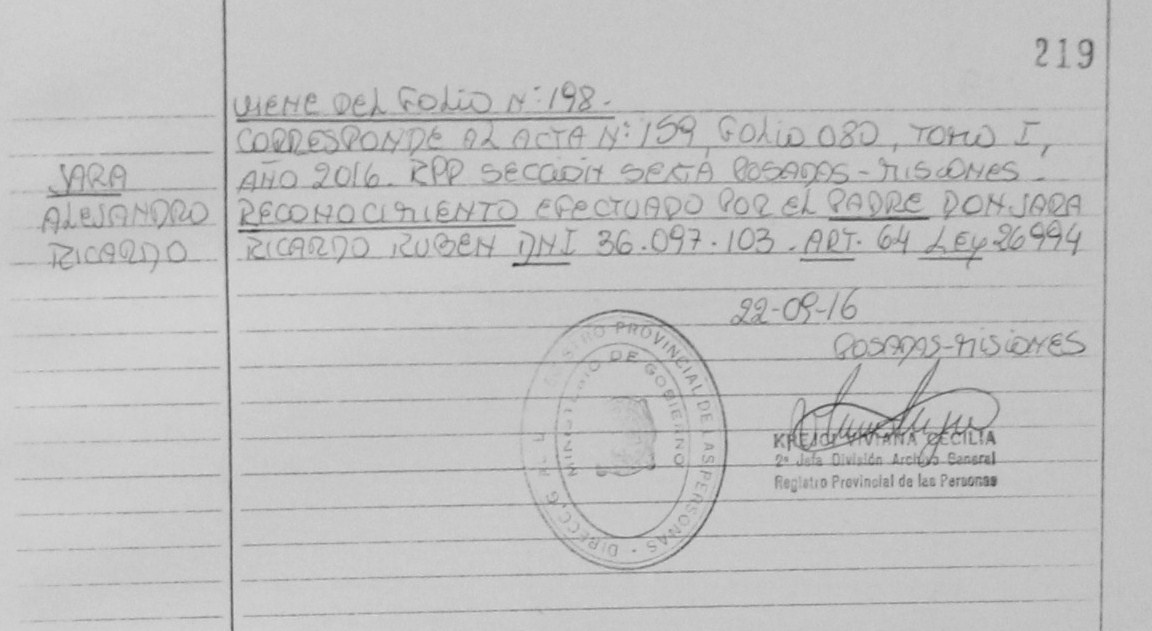 219
VIENE DEL FOLIO N°:198.
CORRESPONDE AL ACTA N°:159, FOLIO 080, TOMO I,
AÑO 2016. RPP SECCION SEXTA POSADAS-MISIONES.
RECONOCIMIENTO EFECTUADO POR EL PADRE DON JARA
RICARDO RUBEN DNI 36.097.103. ART. 64 LEY 26994
JARA
ALEJANDRO
RICARDO
22-09-16
POSADAS-MISIONES
KREJCI VIVIANA CECILIA
2º Jefa División Archivo General
Registro Provincial de las Personas
PROVINCIAL DE LAS PERSONAS - DIRECC. G
MINISTERIO DE GOBIERNO